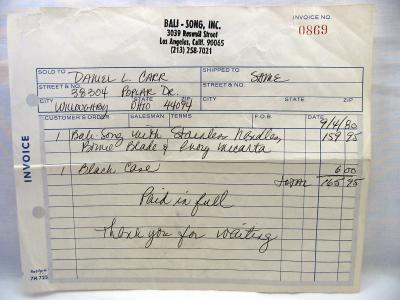 BALI - SONG, INC.
3039 Roswell Street
Los Angeles, Calif. 90065
(213) 258-7021
INVOICE NO.
0869
SOLD TO Daniel L. Carr SHIPPED TO Same
STREET & NO. 38304 Poplar Dr. STREET & NO.
CITY Willoughby STATE Ohio ZIP 44094 CITY STATE ZIP
CUSTOMER'S ORDER SALESMAN TERMS F.O.B. DATE
9/4/80
1 Bali-Song with Stainless Handles, 159 95
Bowie Blade & Ivory Micarta
1 Black Case 6 00
Total 165 95
Paid in full
Thank you for waiting
INVOICE
Rediform
7H 722